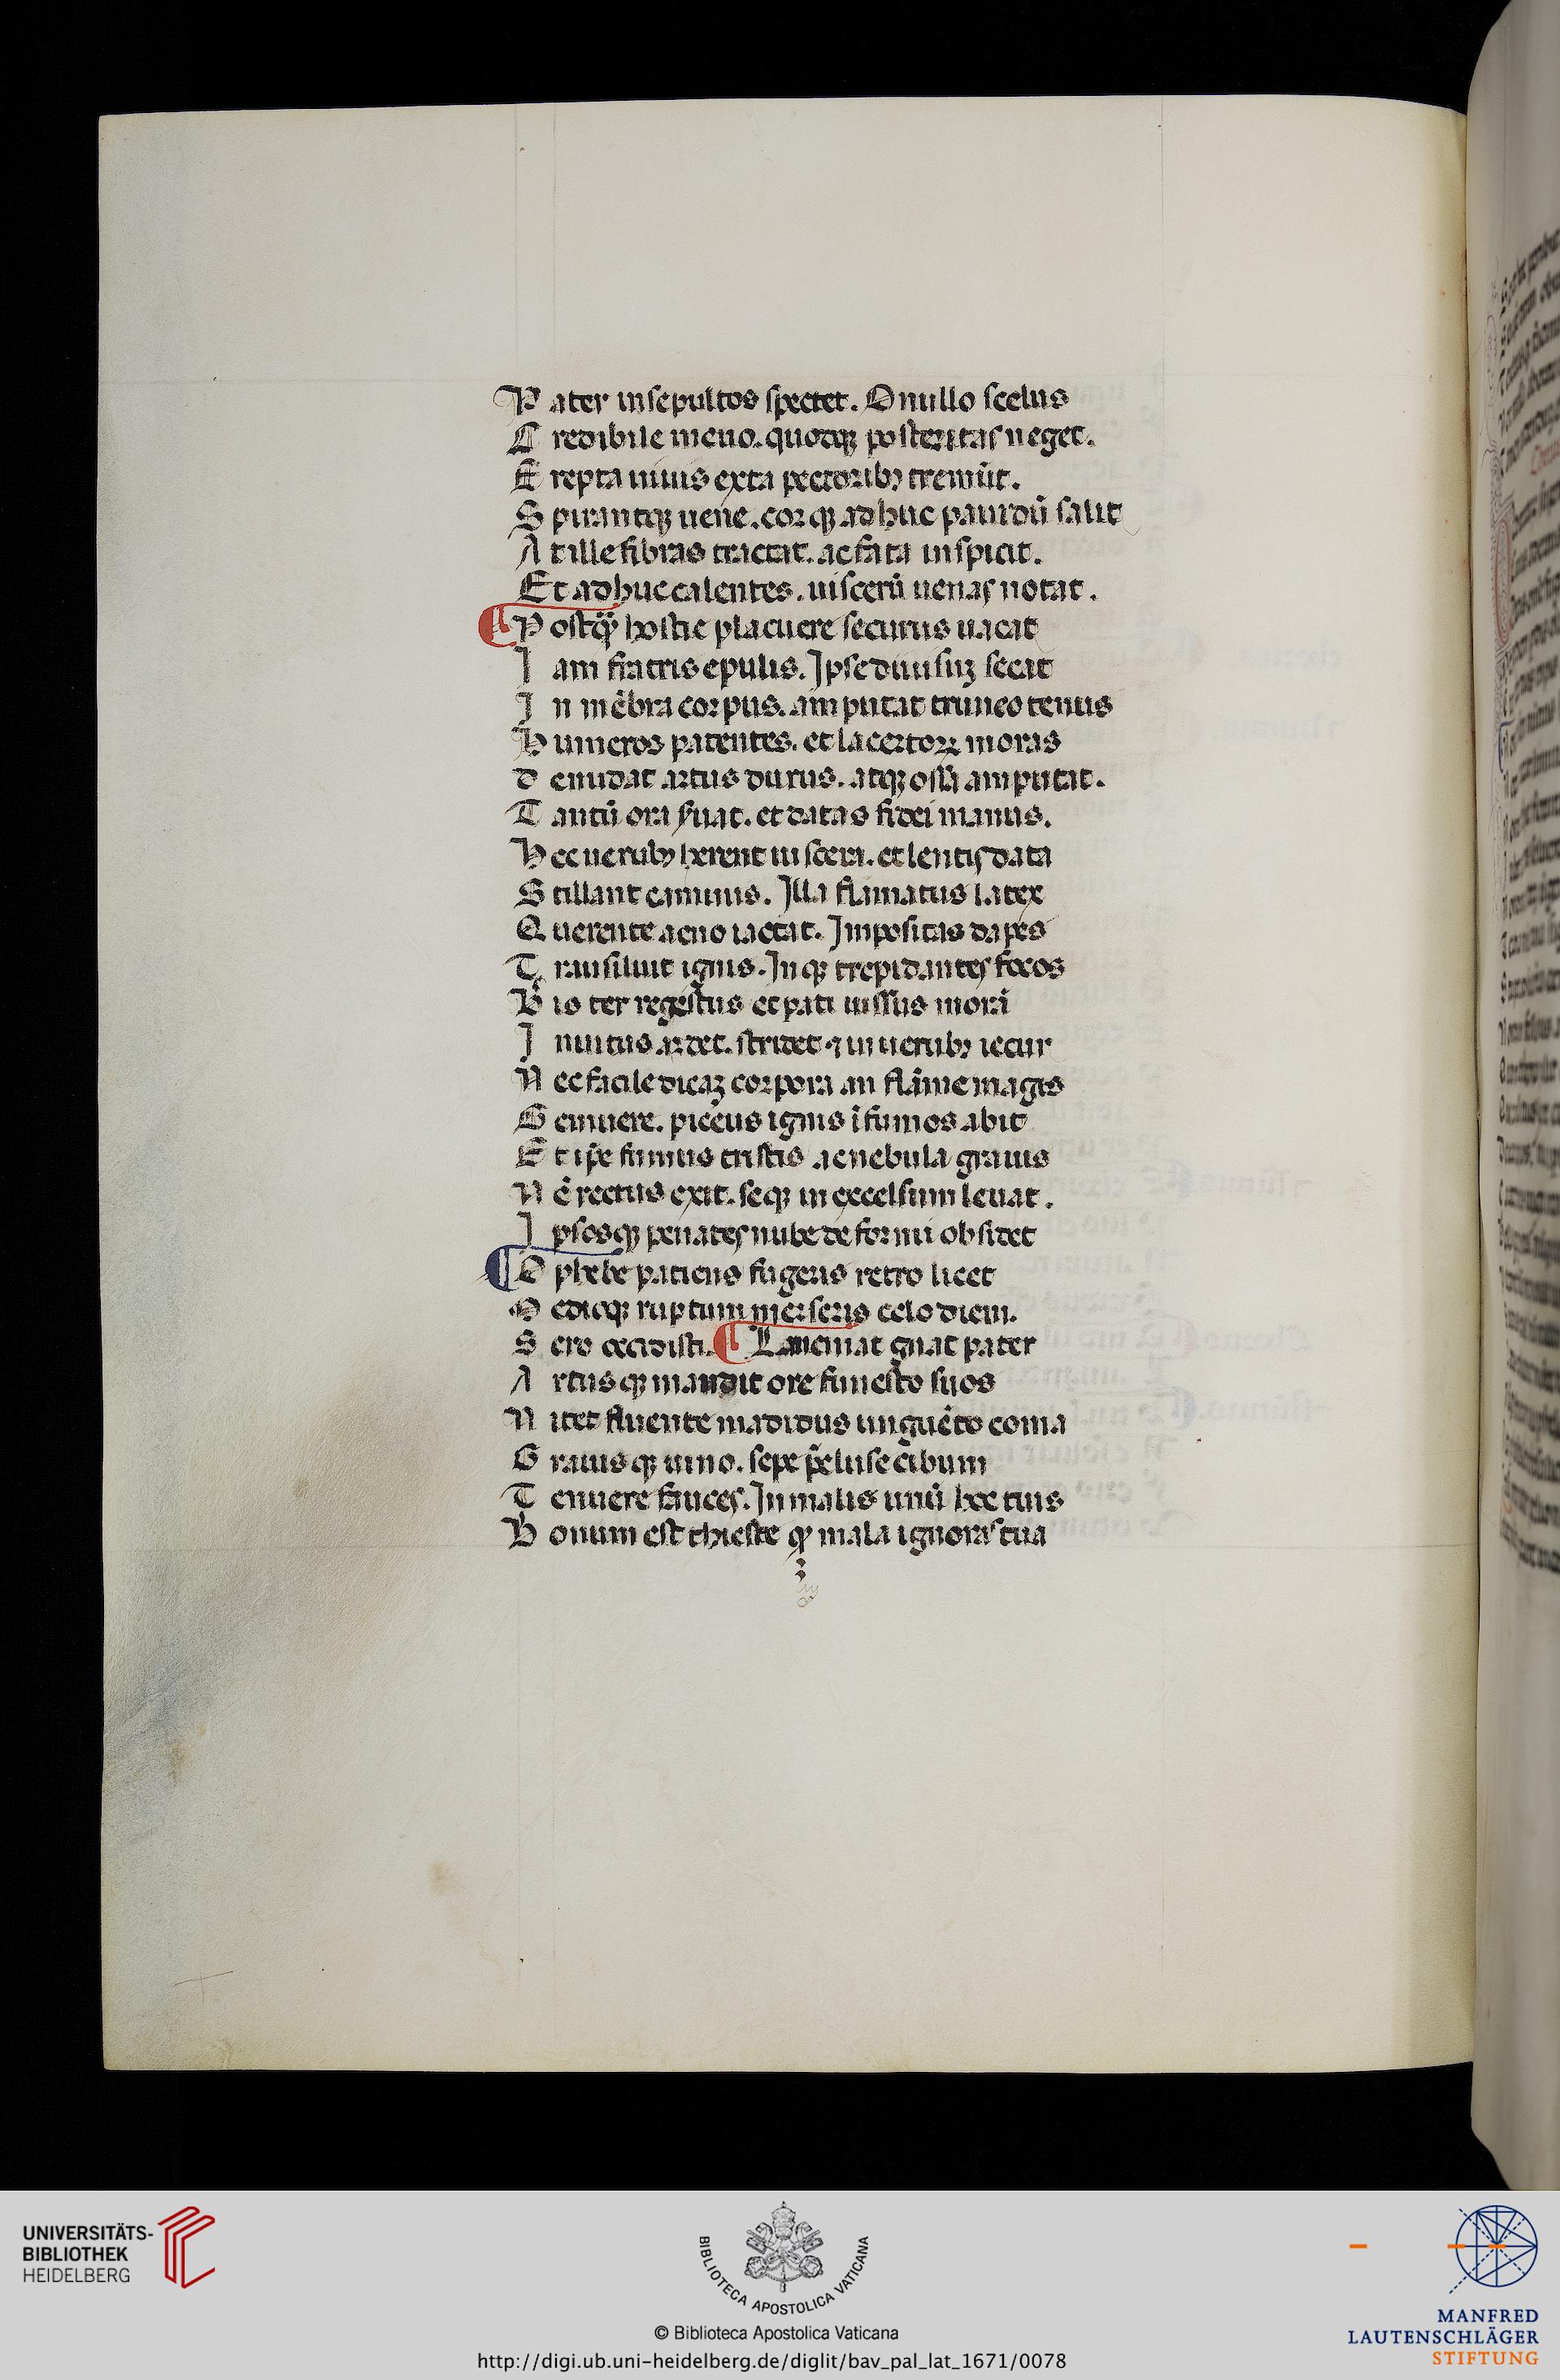 Pater insepultos spectet. O nullo scelus
Credibile in euo. quodq; posteritas neget.
Erepta uiuis exta pectoribꝫ tremūt.
Spirantq; uene. cor qꝫ adhuc pauidū salit
At ille fibras tractat. ac fata inspicit.
Et adhuc calentes. uiscerū uenas notat.
¶ Postqᷓ hostie placuere securus uacat
Iam fratris epulis. Ipse diuisuꝫ secat
In mēbra corpus. amputat trunco tenus
Humeros patentes. et lacertoꝝ moras
denudat artus durus. atqꝫ ossa amputat.
Tantū ora ẜuat. et datas fidei manus.
Hec uerubꝫ herent uiscera. et lentis data
Stillant caminis. Illa flamatus latex
Querente aeno iactat. Impositas dapes
Transiluit ignis. Inqꝫ trepidantes focos
Bis ter regestus et pati iussus morā
Inuitus ardet. stridet ⁊ in uerubꝫ iecur
Nec facile dicaꝫ corpora an flāme magis
Gemuere. piceus ignis ī fumos abit
Et ip̄e fumus tristis ac nebula grauis
Nō rectus exit. seqꝫ in excelsum leuat.
Ipsosqꝫ penates nube deformi obsidet
¶ O phebe patiens fugeris retro licet
Medioqꝫ ruptum merseris celo diem.
Sero occidisti. ¶ Lanciniat gnat pater
Artusqꝫ mandit ore funesto suos
Nitet fluente madidus unguēto coma
Grauisqꝫ uino. sepe p̄cluse cibum
Tenuere fauces. In malis unū hoc tuis
Bonum est thieste qꝫ mala ignoras tua
UNIVERSITÄTS-
BIBLIOTHEK
HEIDELBERG
BIBLIOTECA APOSTOLICA VATICANA
© Biblioteca Apostolica Vaticana
http://digi.ub.uni-heidelberg.de/diglit/bav_pal_lat_1671/0078
MANFRED
LAUTENSCHLÄGER
STIFTUNG